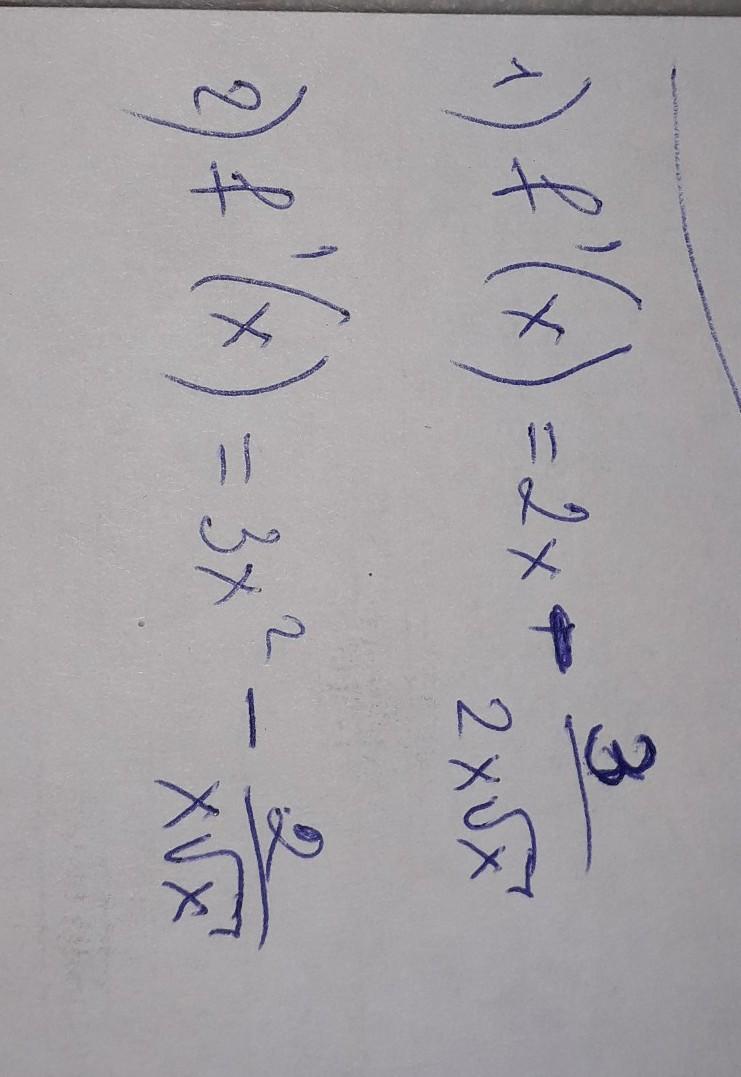 1) f'(x) = 2x + 3/(2x√x)
2) f'(x) = 3x² - 2/(x√x)